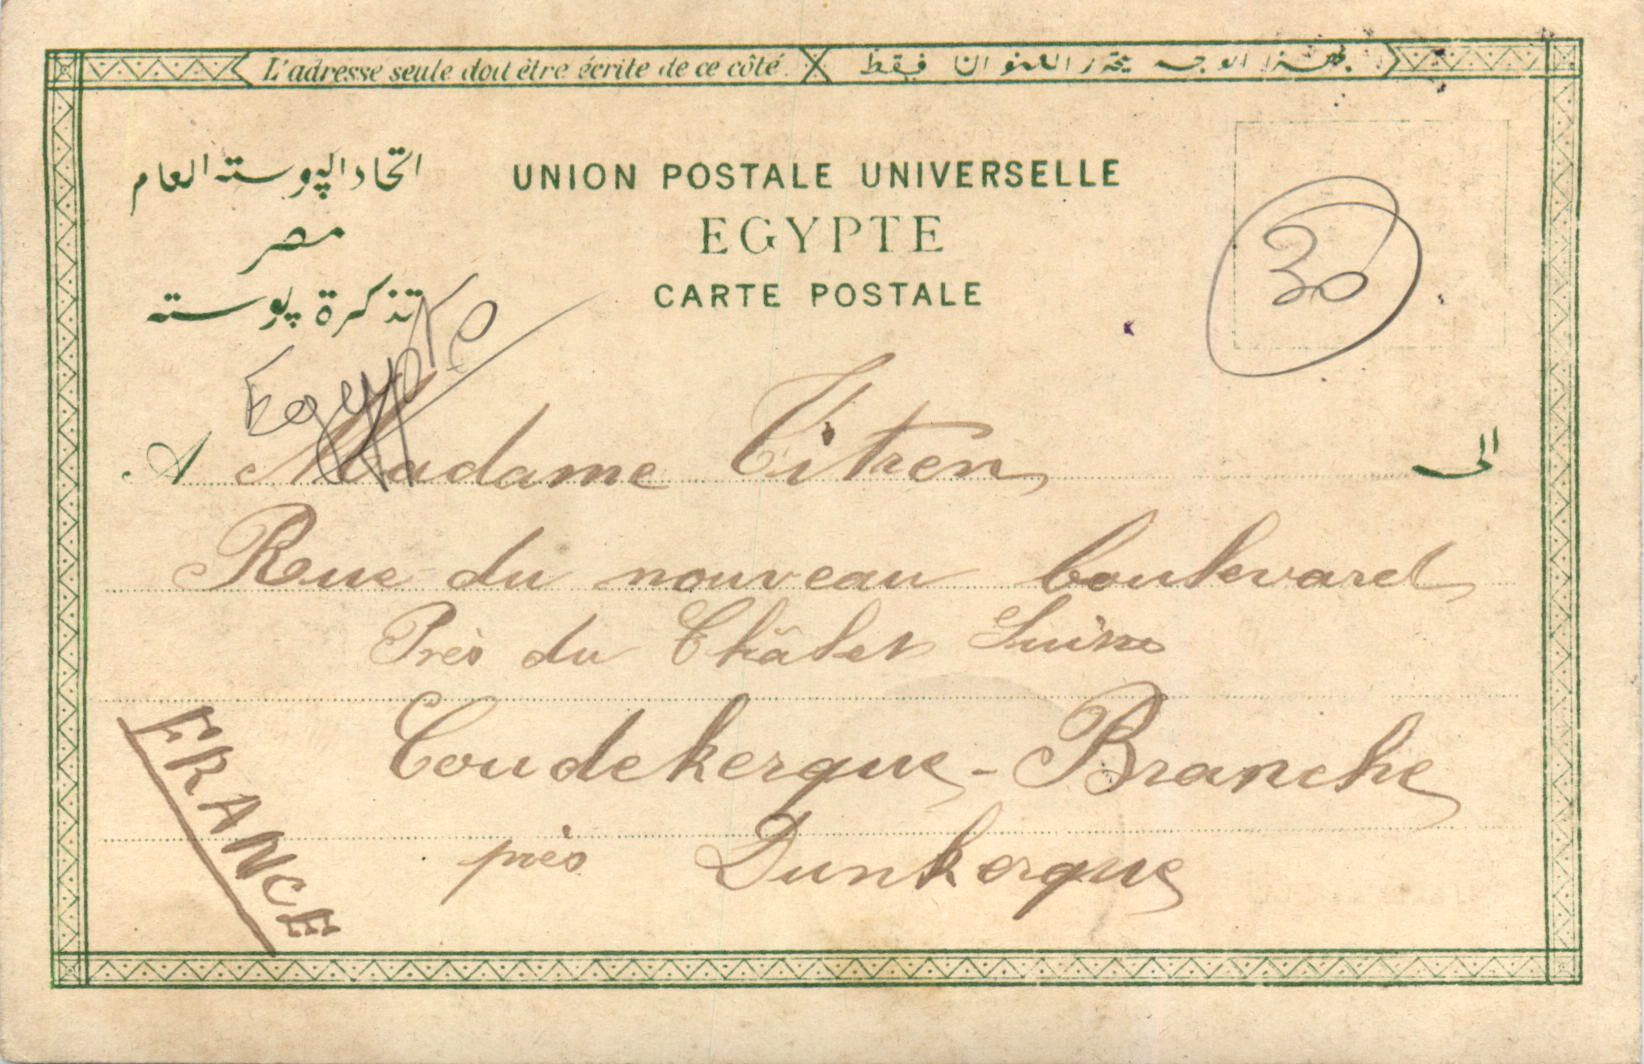 L'adresse seule doit être écrite de ce côté.
بهذا الوجه يحرر العنوان فقط
اتحاد البوسته العام
مصر
تذكرة بوسته
UNION POSTALE UNIVERSELLE
EGYPTE
CARTE POSTALE
30
Egypte
A Madame Titren الى
Rue du nouveau boulevard
Près du Châlet Suisse
Coudekerque-Branche
près Dunkerque
FRANCE